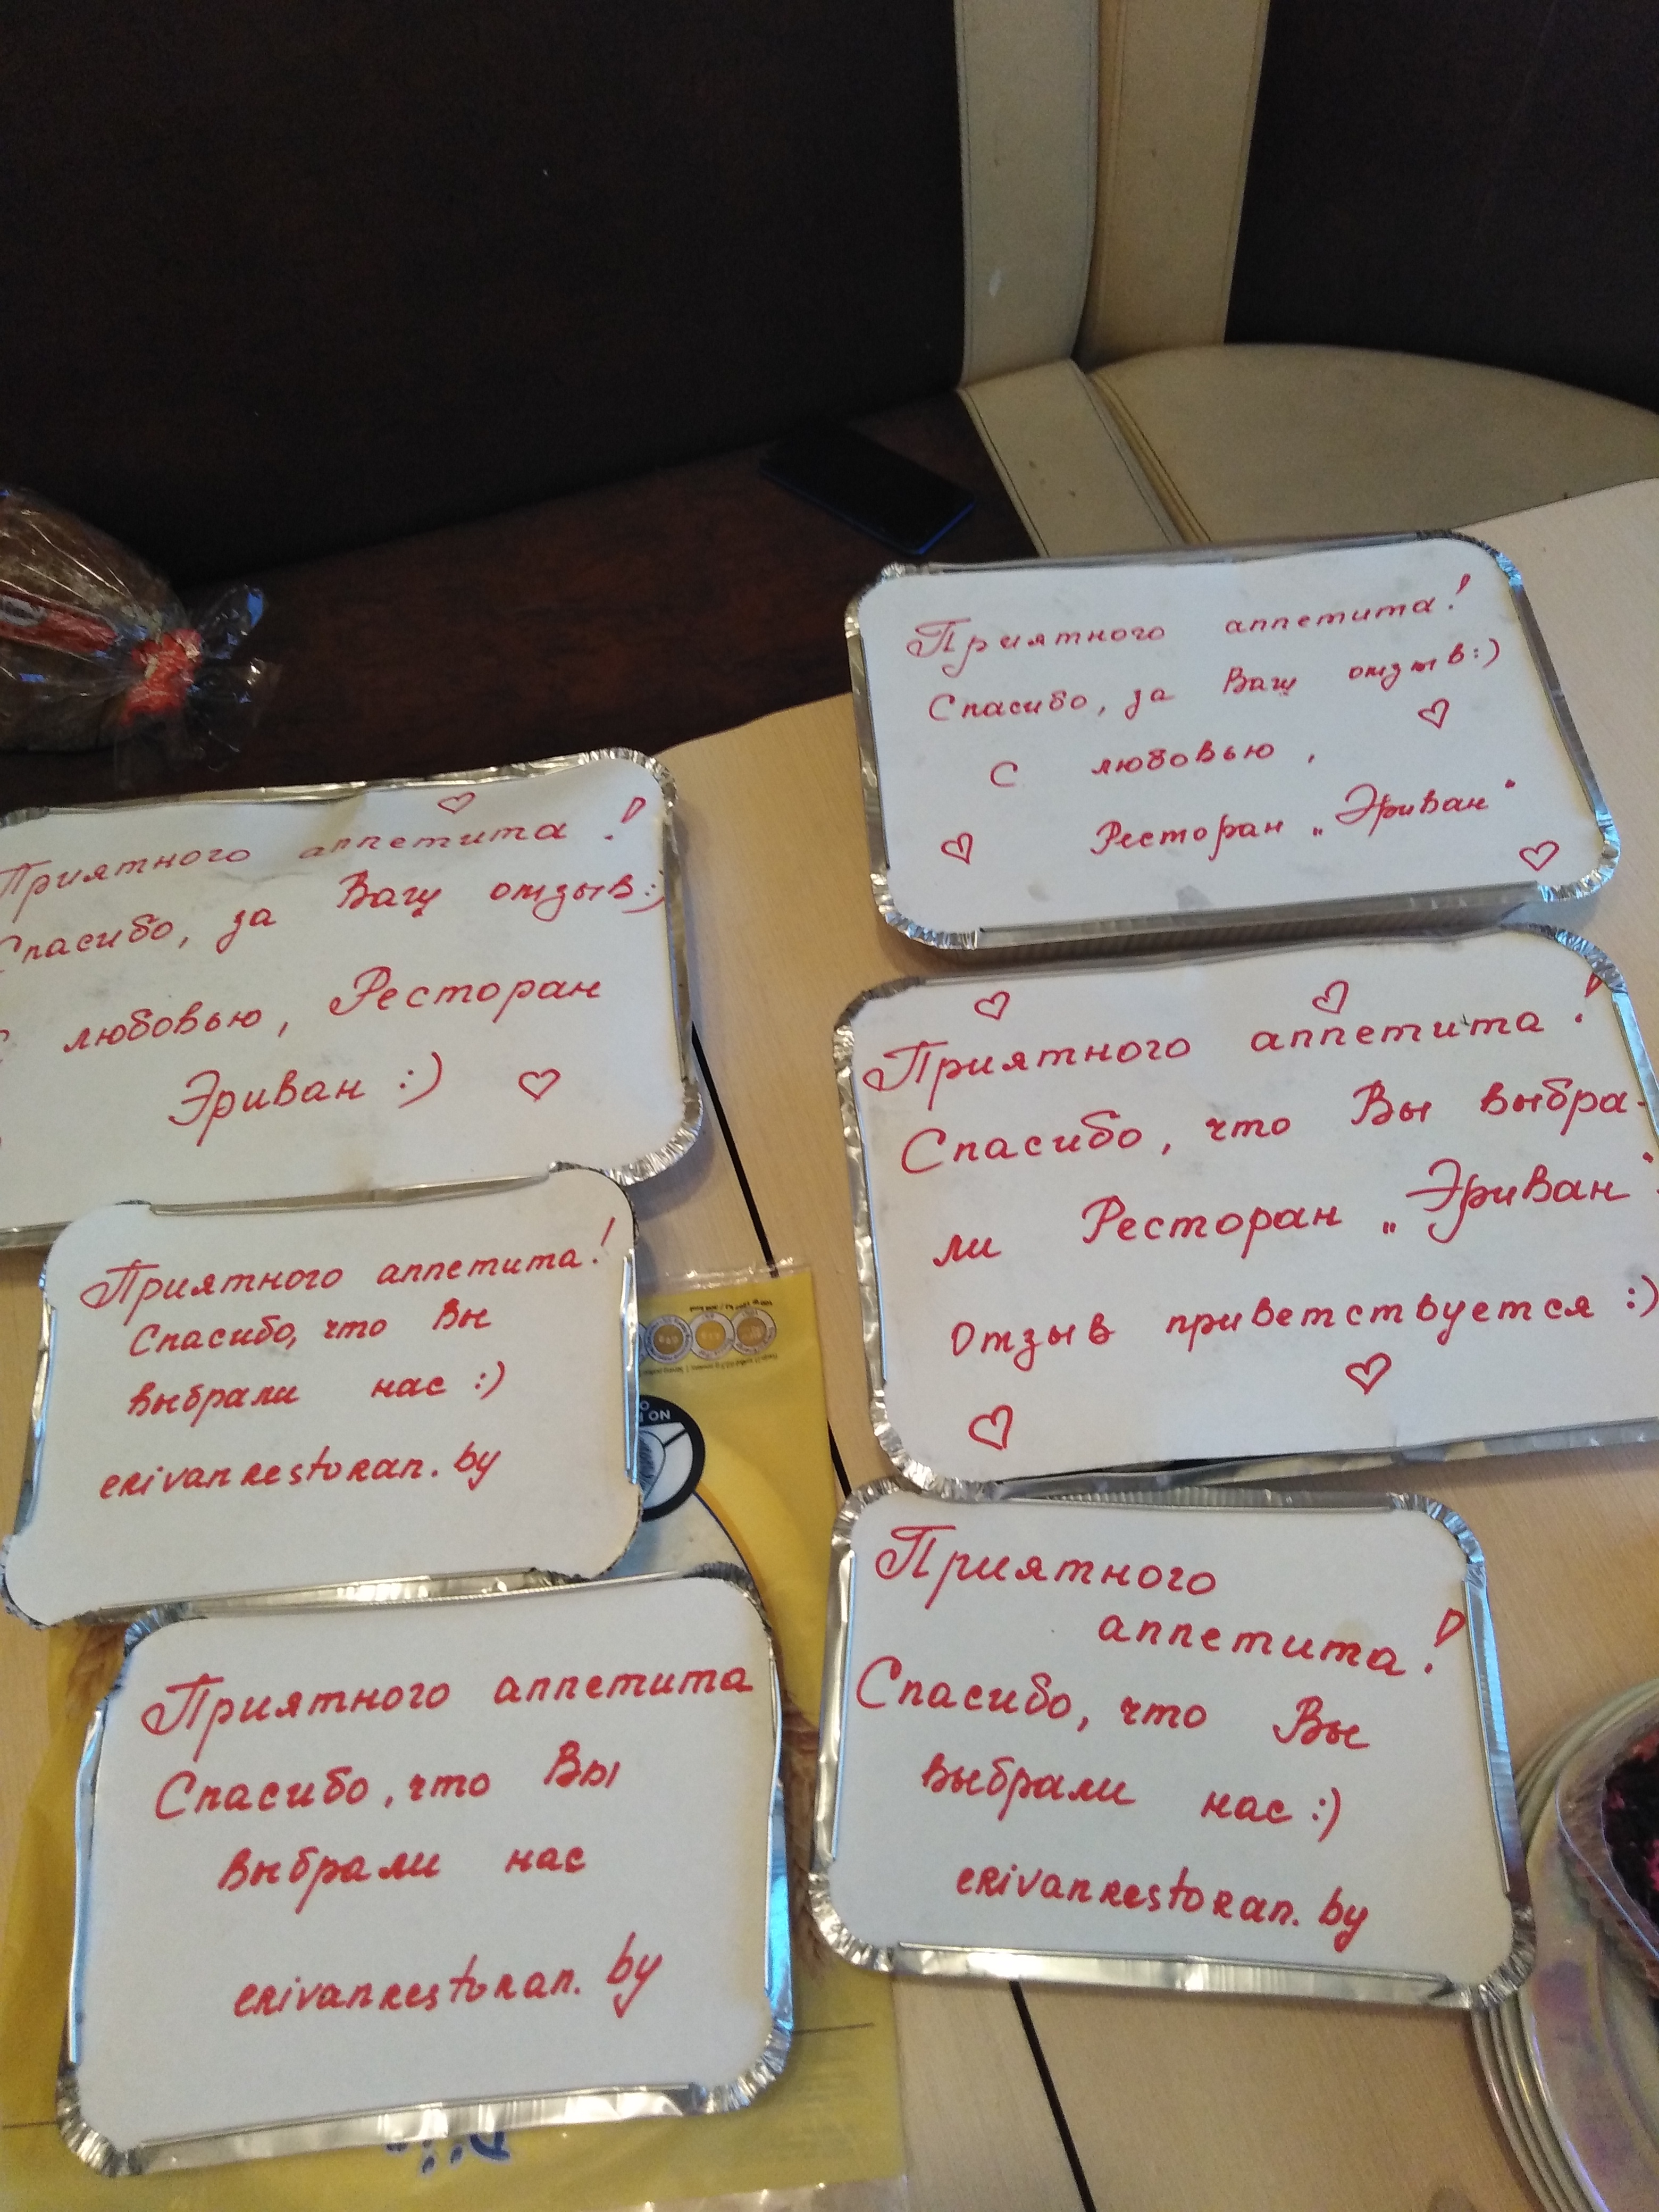 Приятного аппетита!
Спасибо, за Ваш отзыв:)
С любовью,
Ресторан „Эриван"
Приятного аппетита!
Спасибо, за Ваш отзыв:)
С любовью, Ресторан
Эриван :)
Приятного аппетита!
Спасибо, что Вы выбра-
ли Ресторан „Эриван".
Отзыв приветствуется :)
Приятного аппетита!
Спасибо, что Вы
выбрали нас :)
erivanrestoran.by
Приятного
аппетита!
Спасибо, что Вы
выбрали нас :)
erivanrestoran.by
Приятного аппетита
Спасибо, что Вы
выбрали нас
erivanrestoran.by